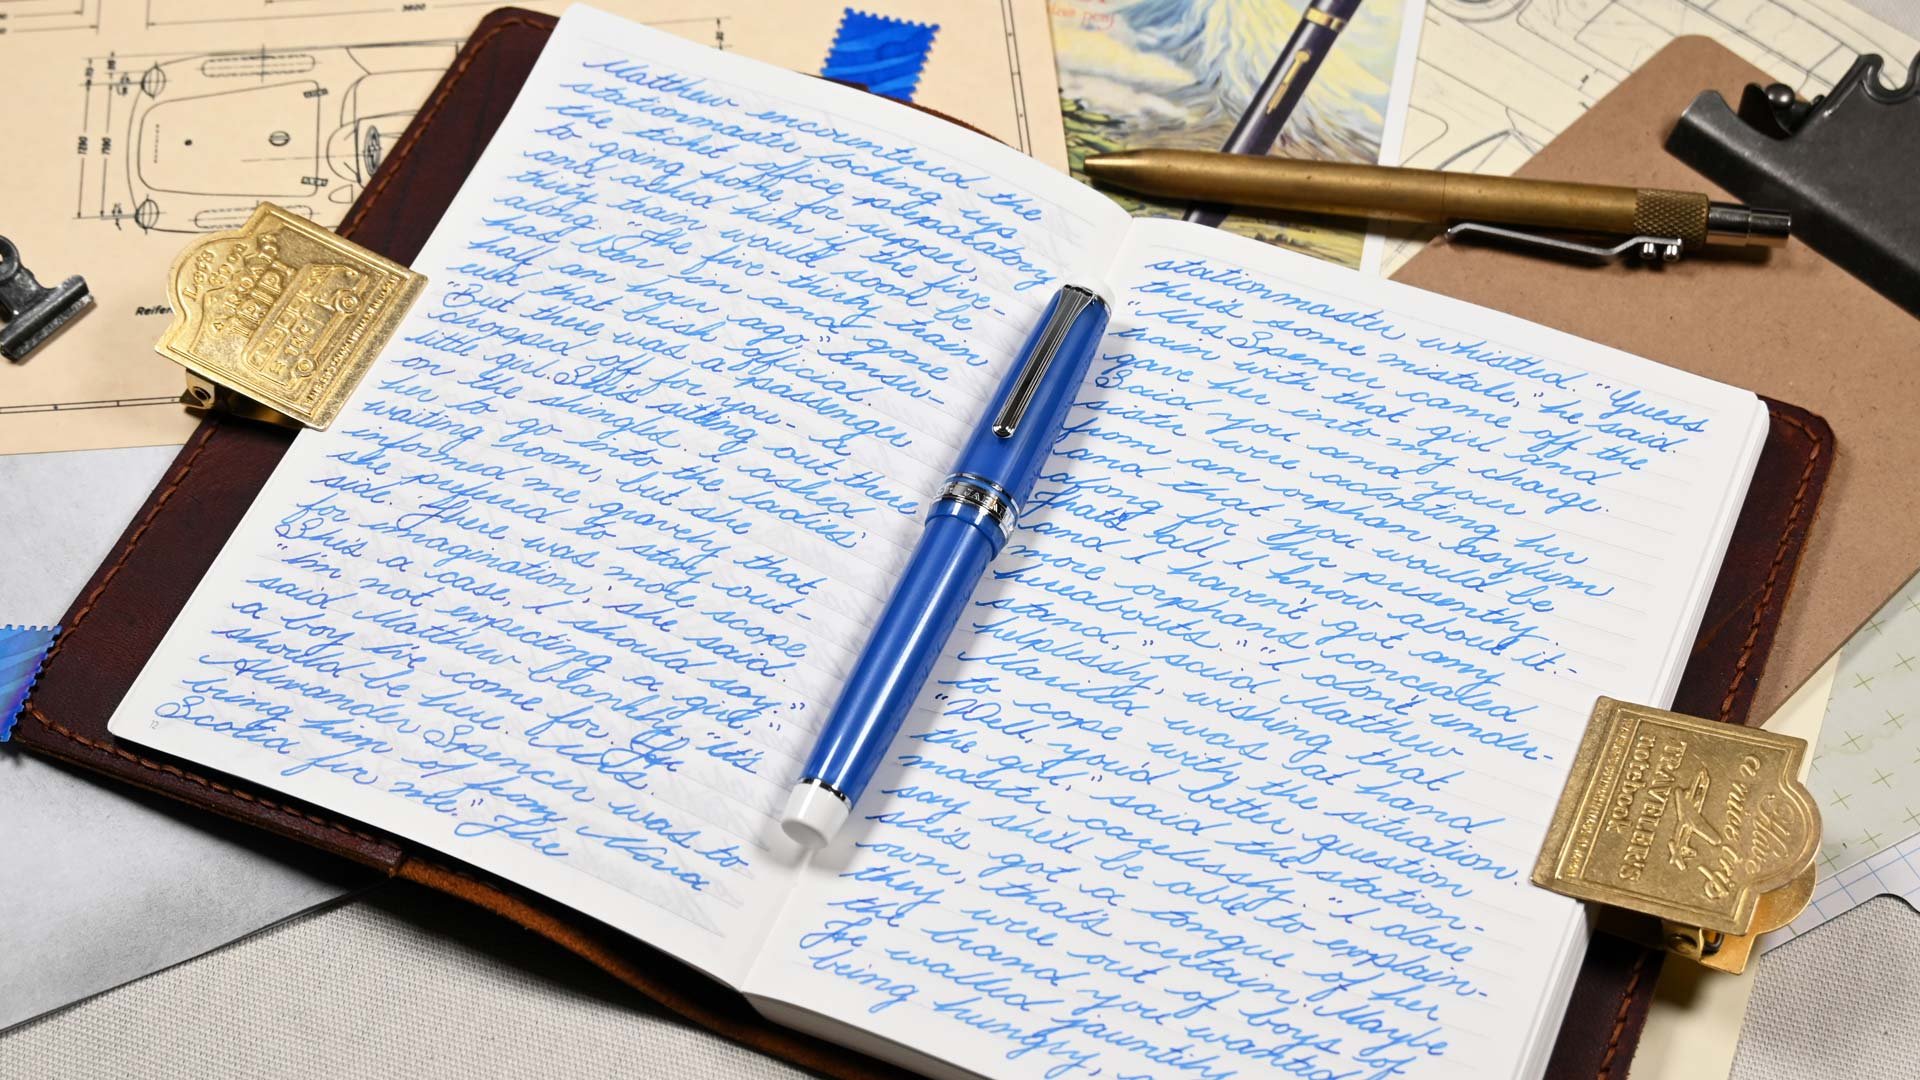 Matthew encountered the
stationmaster locking up
the ticket office preparatory
to going home for supper,
and asked him if the five-
thirty train would soon be
along. "The five-thirty train
has been in and gone
half an hour ago," answ-
ered that brisk official.
"But there was a passenger
dropped off for you- a
little girl. She's sitting out there
on the shingles. I asked
her to go into the ladies'
waiting room, but she
informed me gravely that
she preferred to stay out-
side. 'There was more scope
for imagination,' she said.
She's a case, I should say."
"I'm not expecting a girl,"
said Matthew blankly. "It's
a boy I've come for. He
should be here. Mrs.
Alexander Spencer was to
bring him over from Nova
Scotia for me." The
12
stationmaster whistled. "Guess
there's some mistake," he said.
"Mrs. Spencer came off the
train with that girl and
gave her into my charge.
Said you and your
sister were adopting her
from an orphan asylum
and that you would be
along for her presently.
That's all I know about it-
and I haven't got any
more orphans concealed
hereabouts." "I don't under-
stand," said Matthew
helplessly, wishing that
Marilla was at hand
to cope with the situation.
"Well, you'd better question
the girl," said the station-
master carelessly. "I dare
say she'll be able to explain-
she's got a tongue of her
own, that's certain. Maybe
they were out of boys of
the brand you wanted."
He walked jauntily
being hungry,
LET'S
TAKE A
ROAD
TRIP!
Have
a nice trip
TRAVELER'S
notebook
3600
1790
1760
Reifen
JAPAN